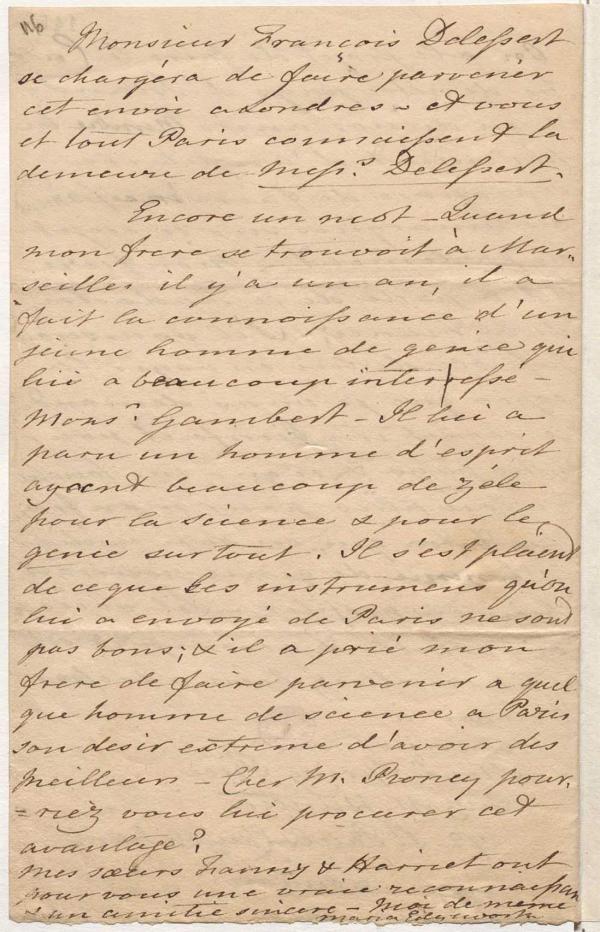 116
Monsieur François Delessert
se chargéra de faire parvenir
cet envoi a Londres - et vous
et tout Paris connaissent la
demeure de Messrs. Delessert.
Encore un mot - Quand
mon frere se trouvoit à Mar-
seilles il y'a un an, il a
fait la connoissance d'un
jeune homme de genie qui
lui a beaucoup interressé -
Monsr. Gambert - Il lui a
paru un homme d'esprit
ayant beaucoup de zéle
pour la science & pour le
genie surtout. Il s'est plaient
de ceque les instrumens qu'on
lui a envoyé de Paris ne sont
pas bons; & il a prié mon
frere de faire parvenir a quel
que homme de science a Paris
son desir extreme d'avoir des
meilleurs - Cher M. Proney pour-
-riez vous lui procurer cet
avantage?
mes sœurs Fanny & Harriet ont
pour vous une vraie reconnaissan
& un amitie sincere - Moi de meme
Maria Edgeworth